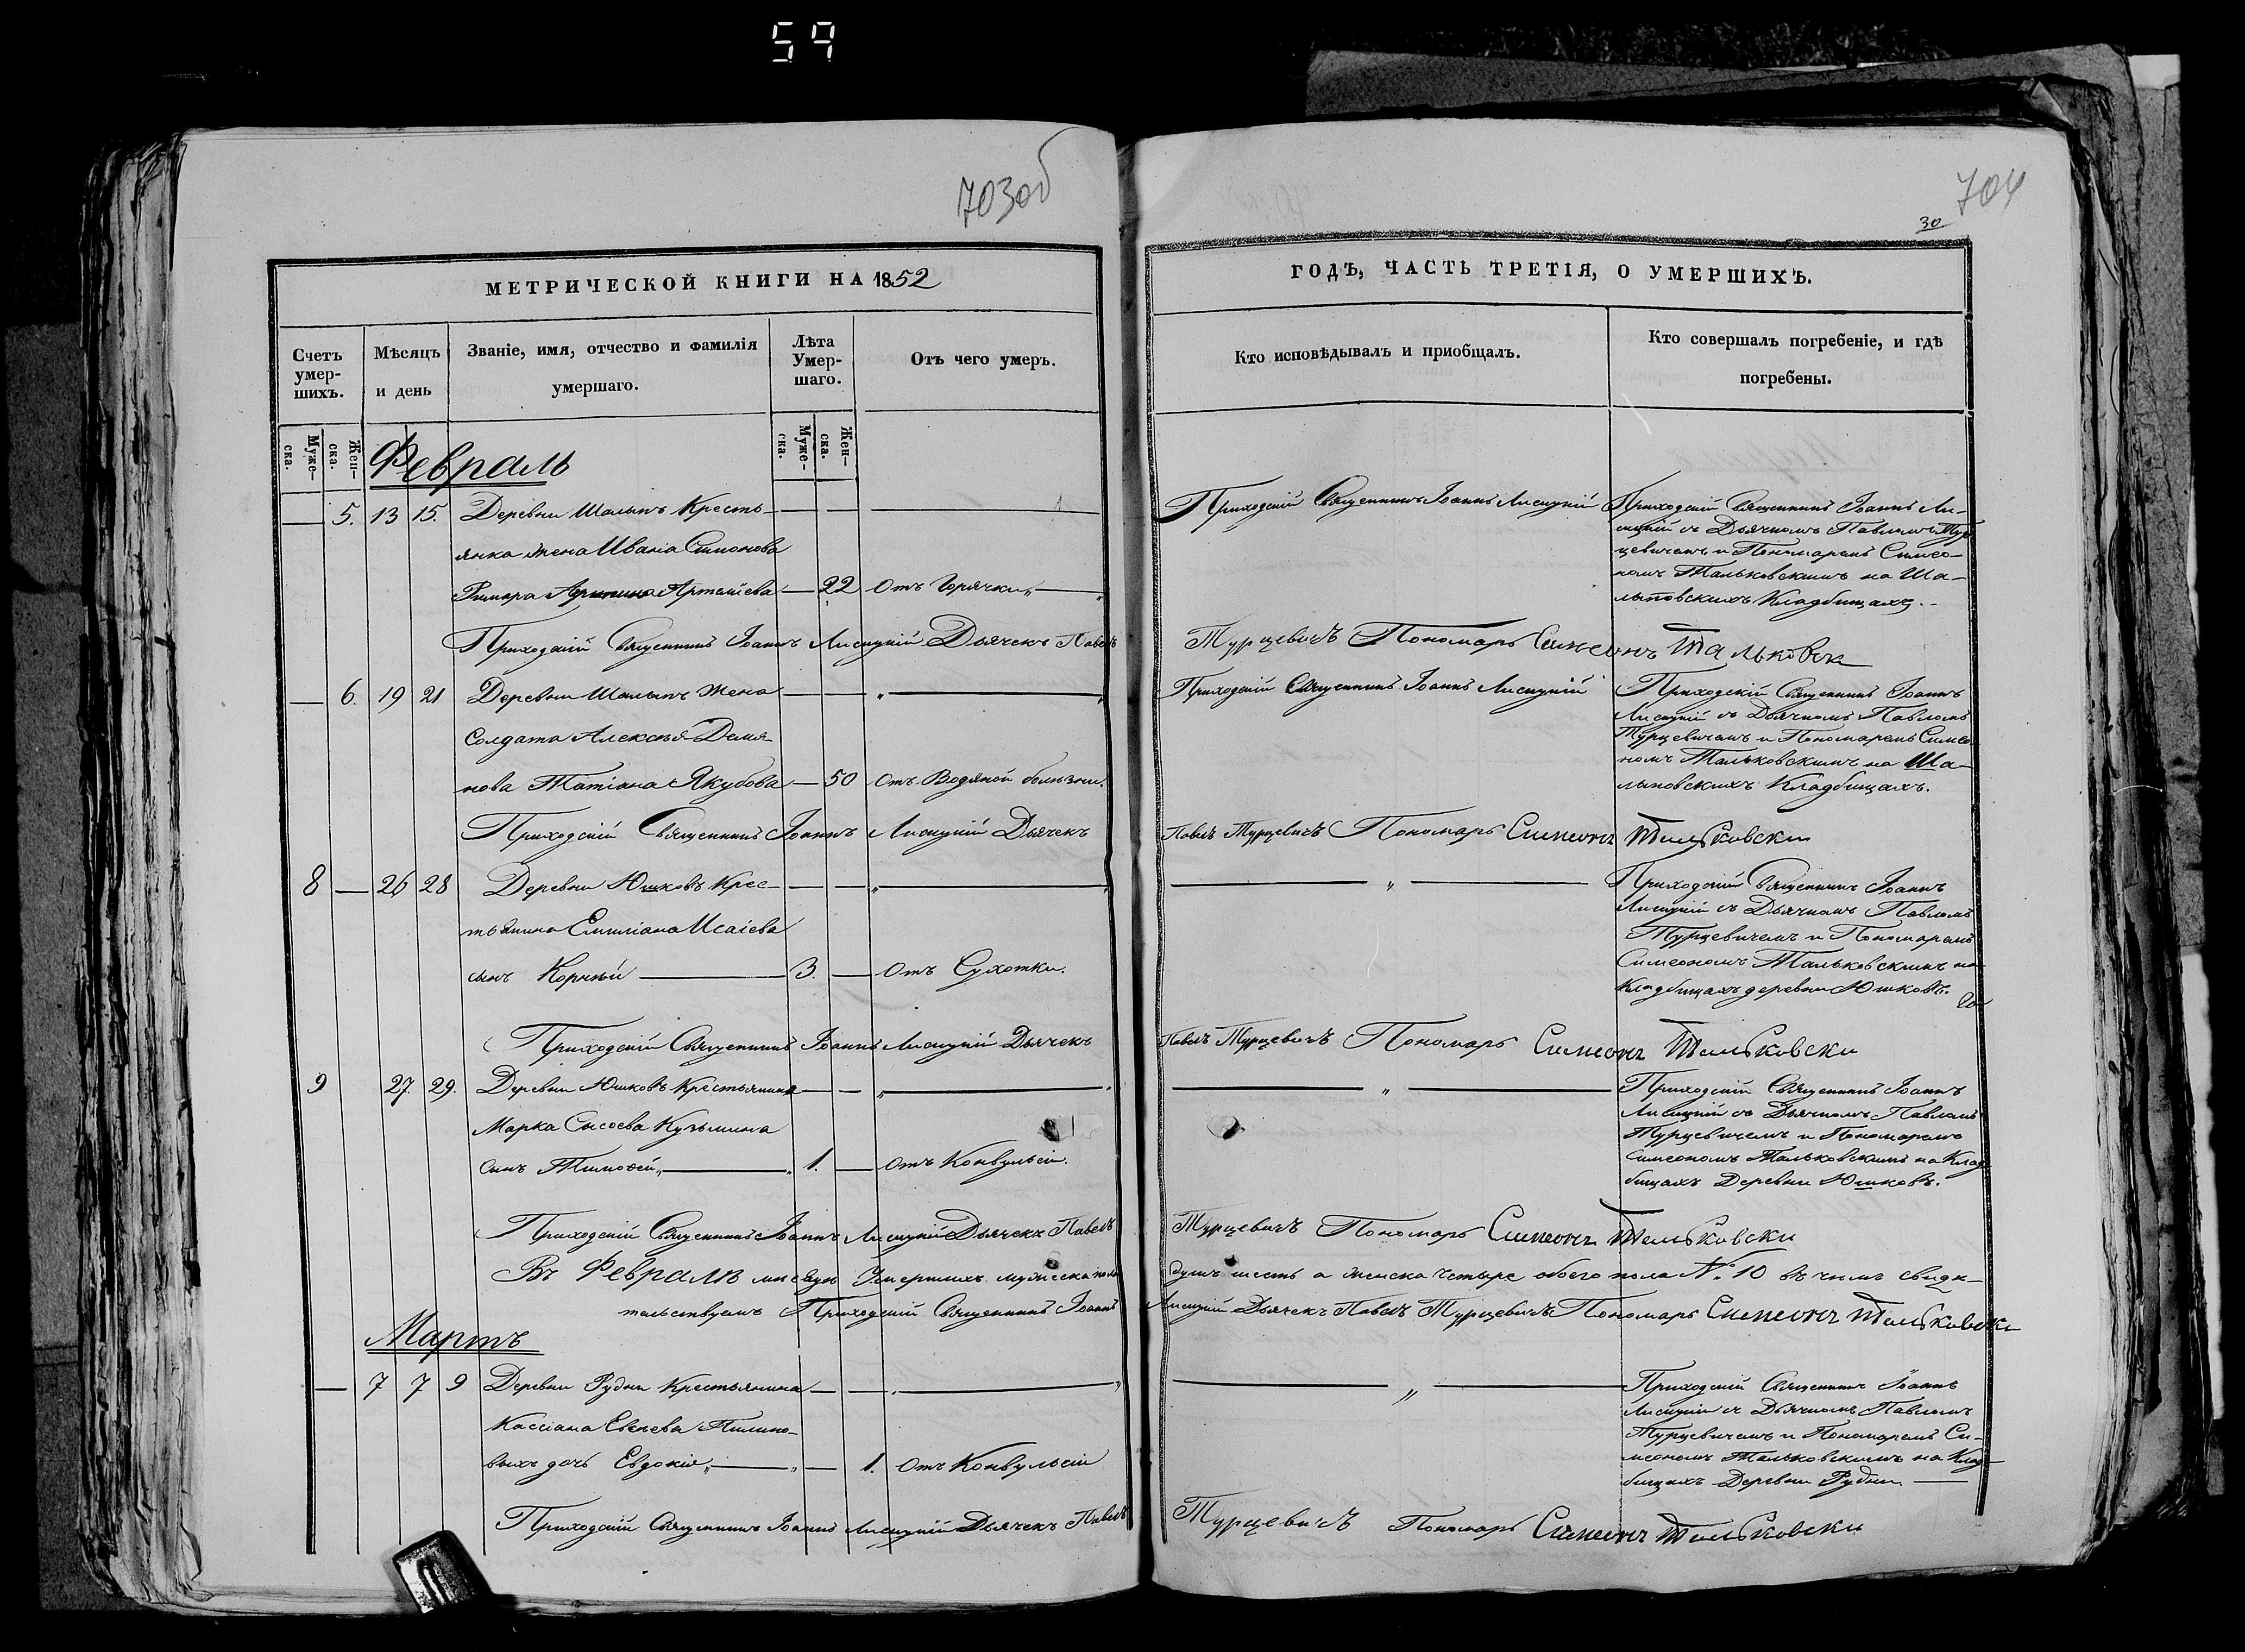 59
703об
МЕТРИЧЕСКОЙ КНИГИ НА 1852
Счетъ умер-шихъ.
Мѣсяцъ и день
Званіе, имя, отчество и фамилія умершаго.
Лѣта Умер-шаго.
Отъ чего умеръ.
Муже-ска.
Жен-ска.
Муже-ска.
Жен-ска.
Февраль
5. 13 15. Деревни Шалыпъ Кресть-
янка жена Ивана Симонова
Римара Артеміева — 22 Отъ Горячки
Приходскій Священникъ Іоаннъ Лисицкій Дьячекъ Павелъ
6. 19 21 Деревни Шалыпъ Жена
Солдата Алексѣя Демя-
нова Татіана Якубова — 50 Отъ Водяной болѣзни.
Приходскій Священникъ Іоаннъ Лисицкій Дьячекъ
8 — 26 28 Деревни Юшковъ Крес-
тьянина Емиліана Исаіева
сынъ Корнѣй — 3. — Отъ Сухотки.
Приходскій Священникъ Іоаннъ Лисицкій Дьячекъ
9 27. 29. Деревни Юшковъ Крестьянина
Марка Сысоева Кузьмина
сынъ Тимоѳей — 1. — Отъ Конвульсіи.
Приходскій Священникъ Іоаннъ Лисицкій Дьячекъ Павелъ
Въ Февралѣ мѣсяцѣ Умершихъ мужеска пола
тельствуемъ Приходскій Священникъ Іоаннъ
Мартъ
— 7 7 9 Деревни Рудни Крестьянина
Кассіана Евсѣева Пилипо-
выхъ дочь Евдокія — 1. Отъ Конвульсіи
Приходскій Священникъ Іоаннъ Лисицкій Дьячекъ Павелъ
704
30
ГОДЪ, ЧАСТЬ ТРЕТІЯ, О УМЕРШИХЪ.
Кто исповѣдывалъ и приобщалъ.
Кто совершалъ погребеніе, и гдѣ погребены.
Приходскій Священникъ Іоаннъ Лисицкій
Приходскій Священникъ Іоаннъ Ли-
сицкій съ Дьячкомъ Павломъ Тур-
цевичемъ и Пономаремъ Симео-
номъ Тальковскимъ на Ша-
лыповскихъ Кладбищахъ.
Турцевичъ Пономарь Симеонъ Тальковски
Приходскій Священникъ Іоаннъ Лисицкій
Приходскій Священникъ Іоаннъ
Лисицкій съ Дьячкомъ Павломъ
Турцевичемъ и Пономаремъ Симео-
номъ Тальковскимъ на Ша-
лыповскихъ Кладбищахъ.
Павелъ Турцевичъ Пономарь Симеонъ Тальковски
Приходскій Священникъ Іоаннъ
Лисицкій съ Дьячкомъ Павломъ
Турцевичемъ и Пономаремъ
Симеономъ Тальковскимъ на
Кладбищахъ деревни Юшковъ.
Павелъ Турцевичъ Пономарь Симеонъ Тальковски
Приходскій Священникъ Іоаннъ
Лисицкій съ Дьячкомъ Павломъ
Турцевичемъ и Пономаремъ
Симеономъ Тальковскимъ на Клад-
бищахъ Деревни Юшковъ.
Турцевичъ Пономарь Симеонъ Тальковски
душъ шесть а женска Четыре обоего пола № 10 въ чемъ свидѣ-
Лисицкій Дьячекъ Павелъ Турцевичъ Пономарь Симеонъ Тальковски
Приходскій Священникъ Іоаннъ
Лисицкій съ Дьячкомъ Павломъ
Турцевичемъ и Пономаремъ Си-
меономъ Тальковскимъ на Клад-
бищахъ Деревни Рудни
Турцевичъ Пономарь Симеонъ Тальковски